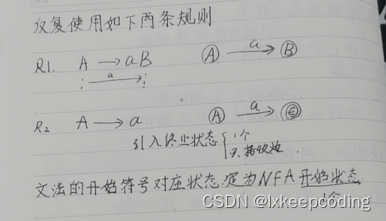 反复使用如下两条规则
R1. A → aB Ⓐ —a→ Ⓑ
a
R2 A → a Ⓐ —a→
引入终止状态 { 1个
文法的开始符号对应状态定为NFA开始状态
CSDN @lxkeepcoding